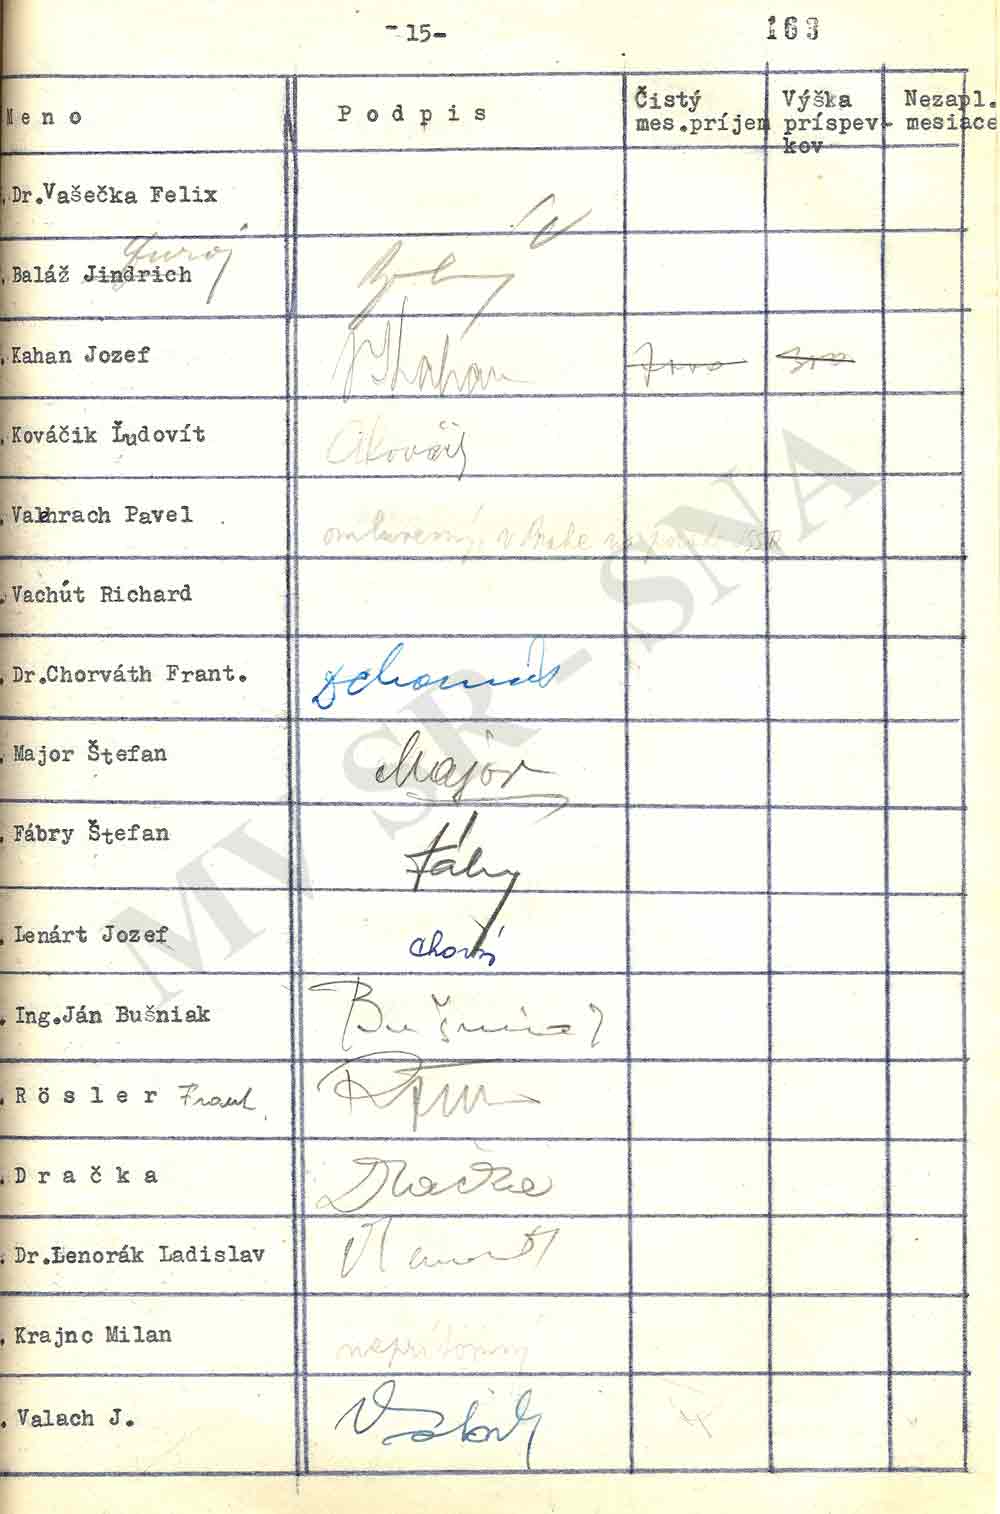 -15-
163
Meno Podpis Čistý mes.príjem Výška príspev-kov Nezapl. mesiace
Dr.Vašečka Felix
Juraj
Baláž Jindrich
Kahan Jozef Kahan
Kováčik Ľudovít Kováčik
Valehrach Pavel omluvený, v Prahe
Vachút Richard
Dr.Chorváth Frant.
Major Štefan Major
Fábry Štefan Fábry
Lenárt Jozef chorý
Ing.Ján Bušniak Bušniak
Rösler Frant.
Dračka Dračka
Dr.Lenorák Ladislav
Krajnc Milan neprítomný
Valach J.
MV SR - SNA